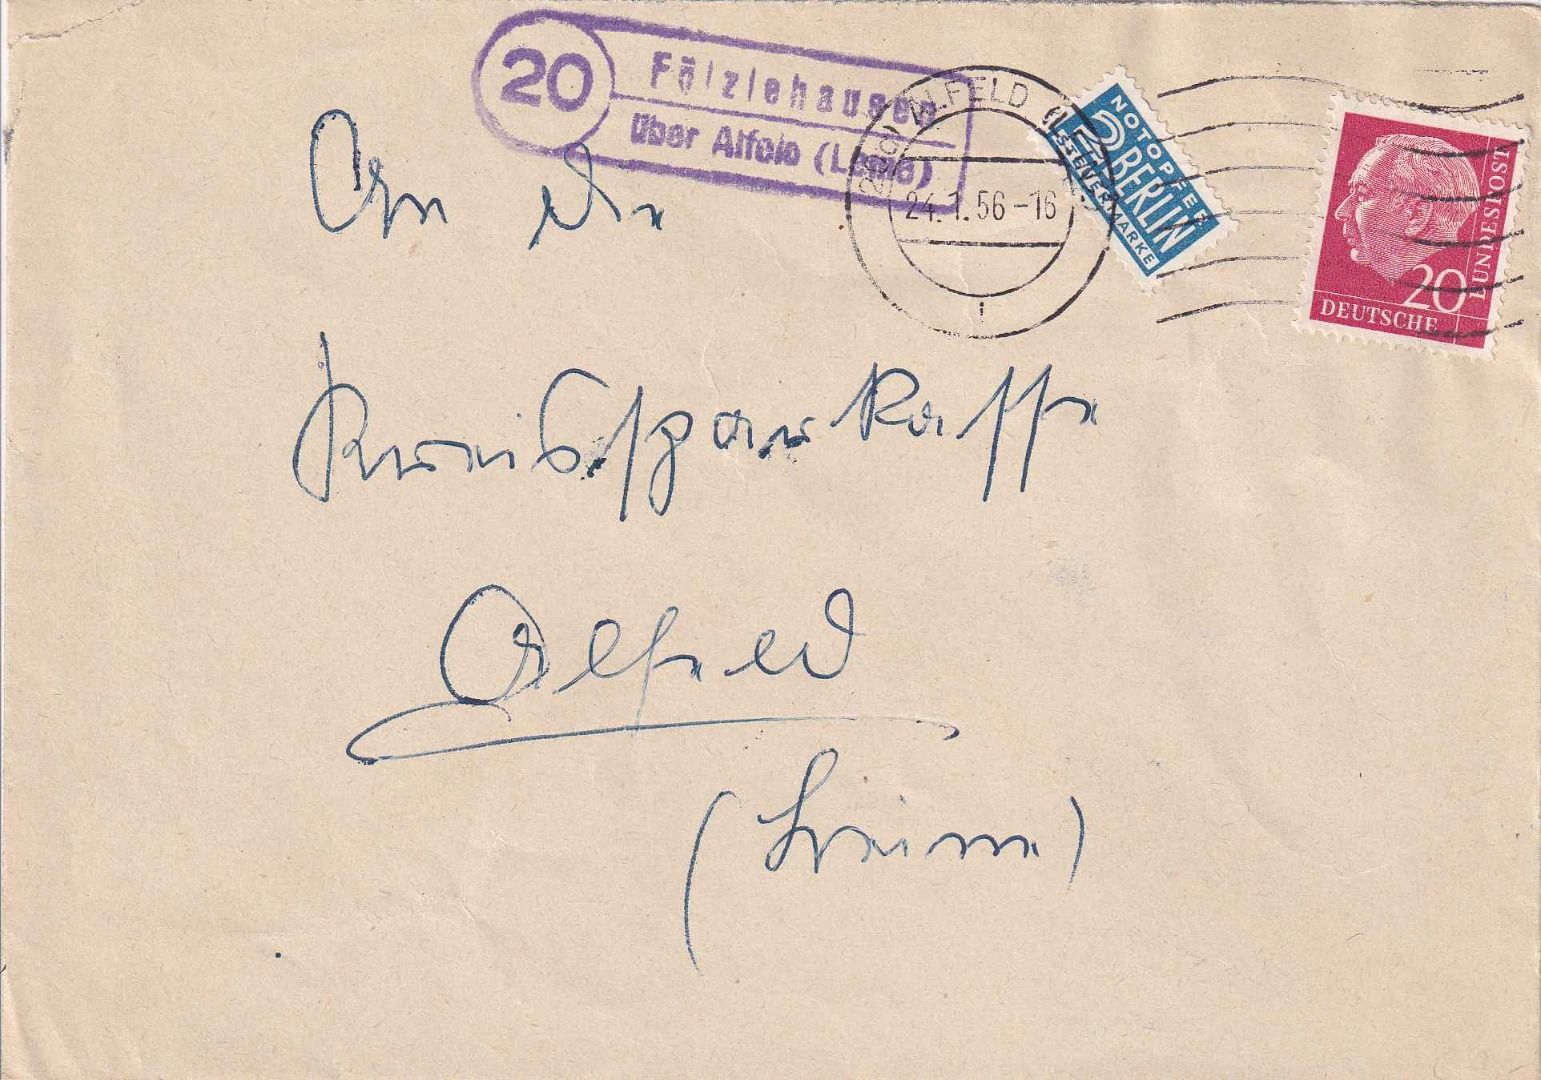 20
Fölziehausen
über Alfeld (Leine)
(20a) ALFELD (LEINE)
24.1.56-16
i
NOTOPFER
2 BERLIN
STEUERMARKE
20
DEUTSCHE
BUNDESPOST
An die
Kreissparkasse
Alfeld
(Leine)